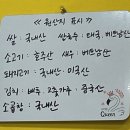 << 원산지 표시 >>
쌀 : 국내산 쌀국수 : 태국, 베트남산
소고기 : 호주산 새우 : 베트남산
돼지고기 : 국내산, 미국산
김치 : 배추, 고추가루 : 중국산
소곱창 : 국내산
Queen